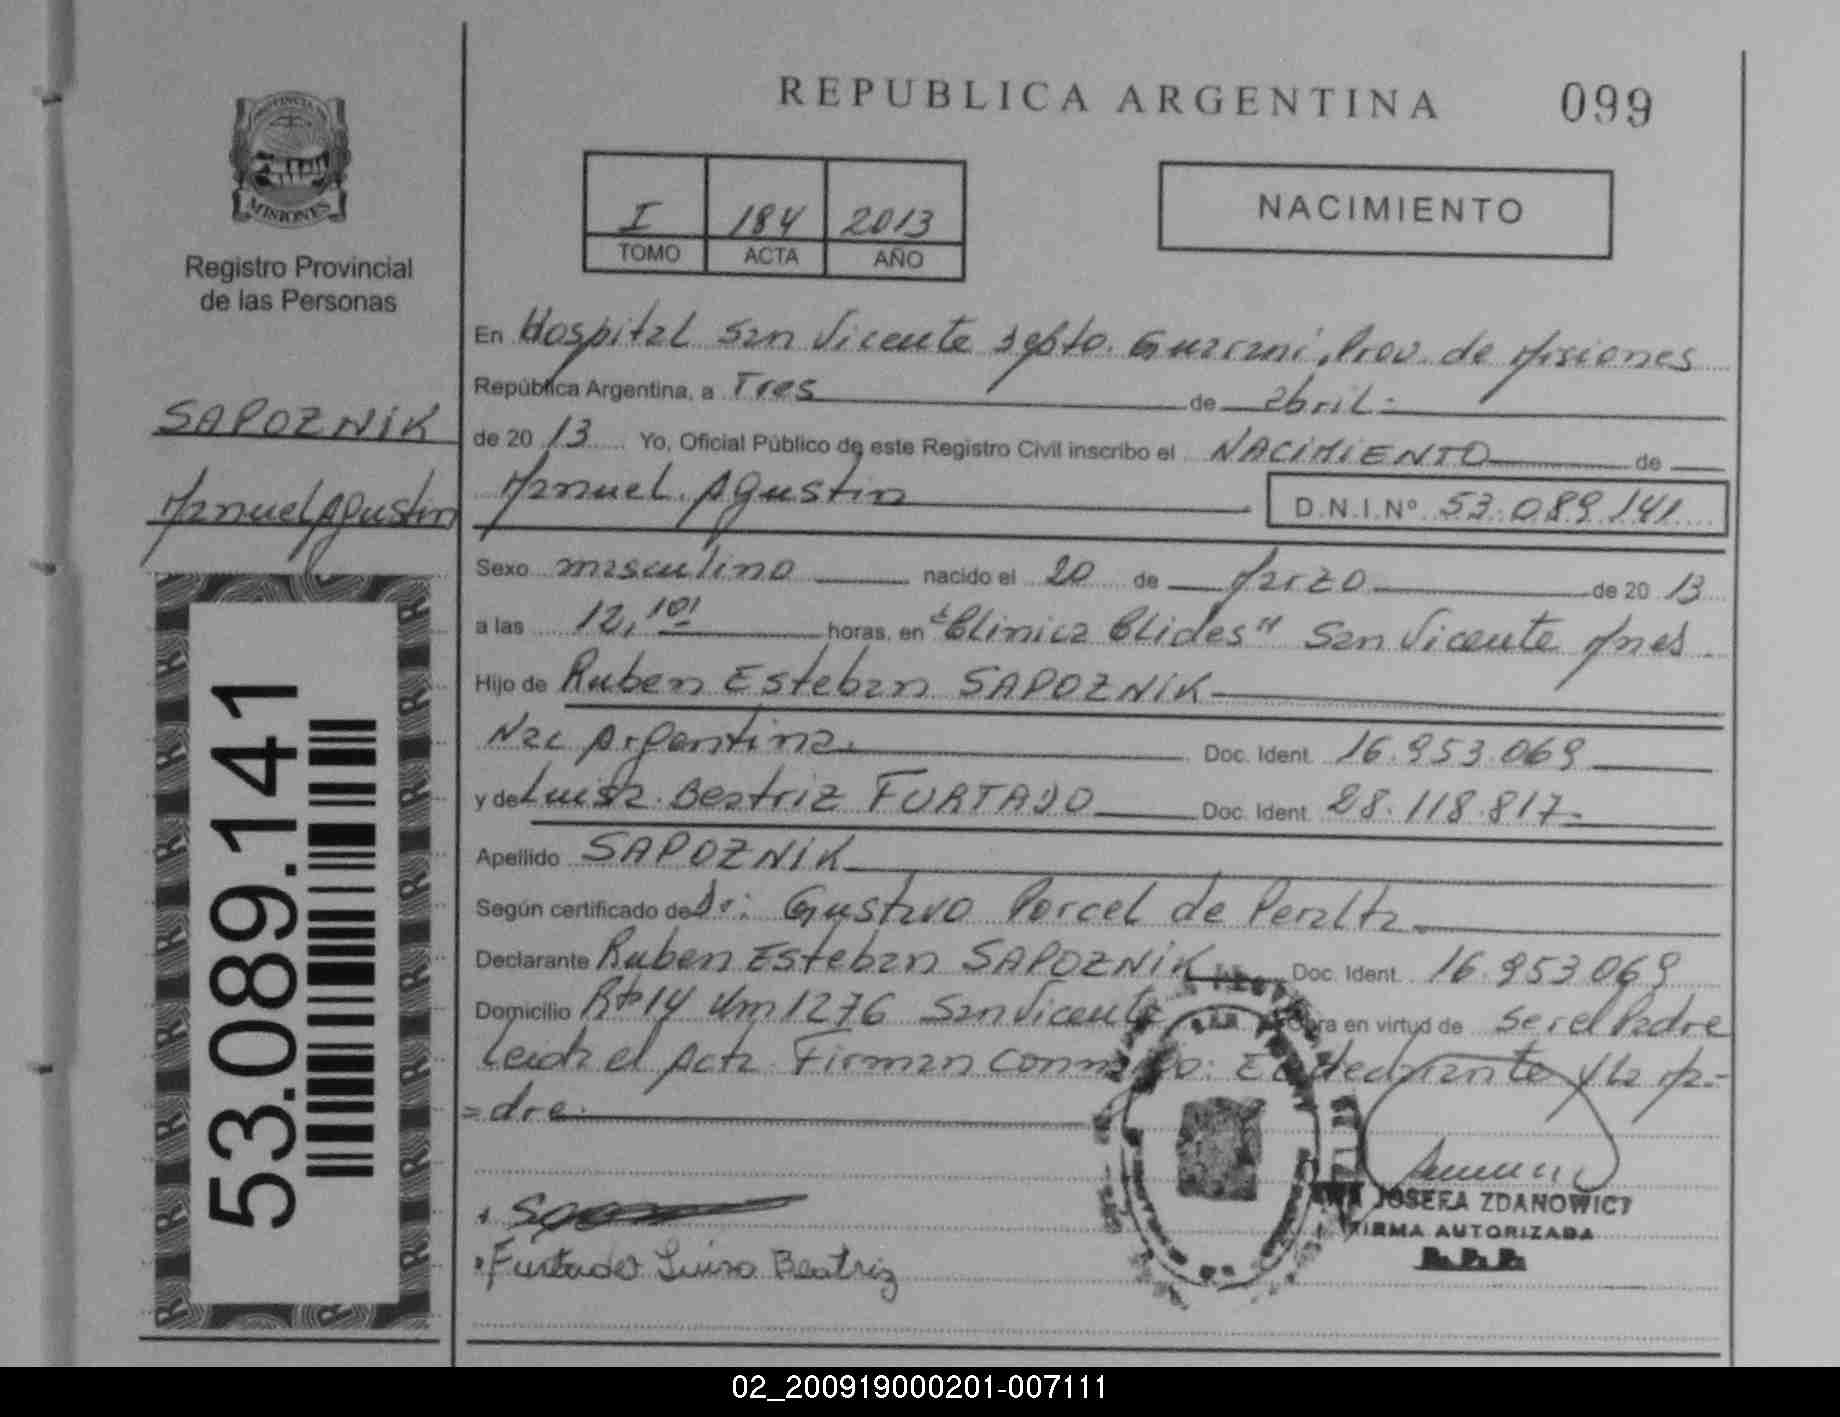 REPUBLICA ARGENTINA 099
PROVINCIA
MISIONES
Registro Provincial
de las Personas
I 184 2013
TOMO ACTA AÑO
NACIMIENTO
SAPOZNIK
Manuel Agustin
53.089.141
En Hospital San Vicente Depto. Guarani, Prov. de Misiones
República Argentina, a Tres de abril.-
de 20 13 Yo, Oficial Público de este Registro Civil inscribo el NACIMIENTO de
Manuel Agustin D.N.I.Nº 53.089.141
Sexo masculino nacido el 20 de Marzo de 20 13
a las 12,10' horas, en "Clinica Clides" San Vicente Mnes.
Hijo de Ruben Esteban SAPOZNIK
Nac Argentina. Doc. Ident. 16.953.069
y de Luisa Beatriz FURTADO Doc. Ident. 28.118.817.-
Apellido SAPOZNIK
Según certificado de Dr: Gustavo Porcel de Peralta
Declarante Ruben Esteban SAPOZNIK Doc. Ident. 16.953.069
Domicilio Rta 14 Km 1276 San Vicente Obra en virtud de ser el Padre
Leida el Acta Firman conmigo: El declarante y la Ma-
=dre.
JOSEFA ZDANOWICZ
FIRMA AUTORIZADA
R.P.P.
Furtado Luisa Beatriz
02_200919000201-007111